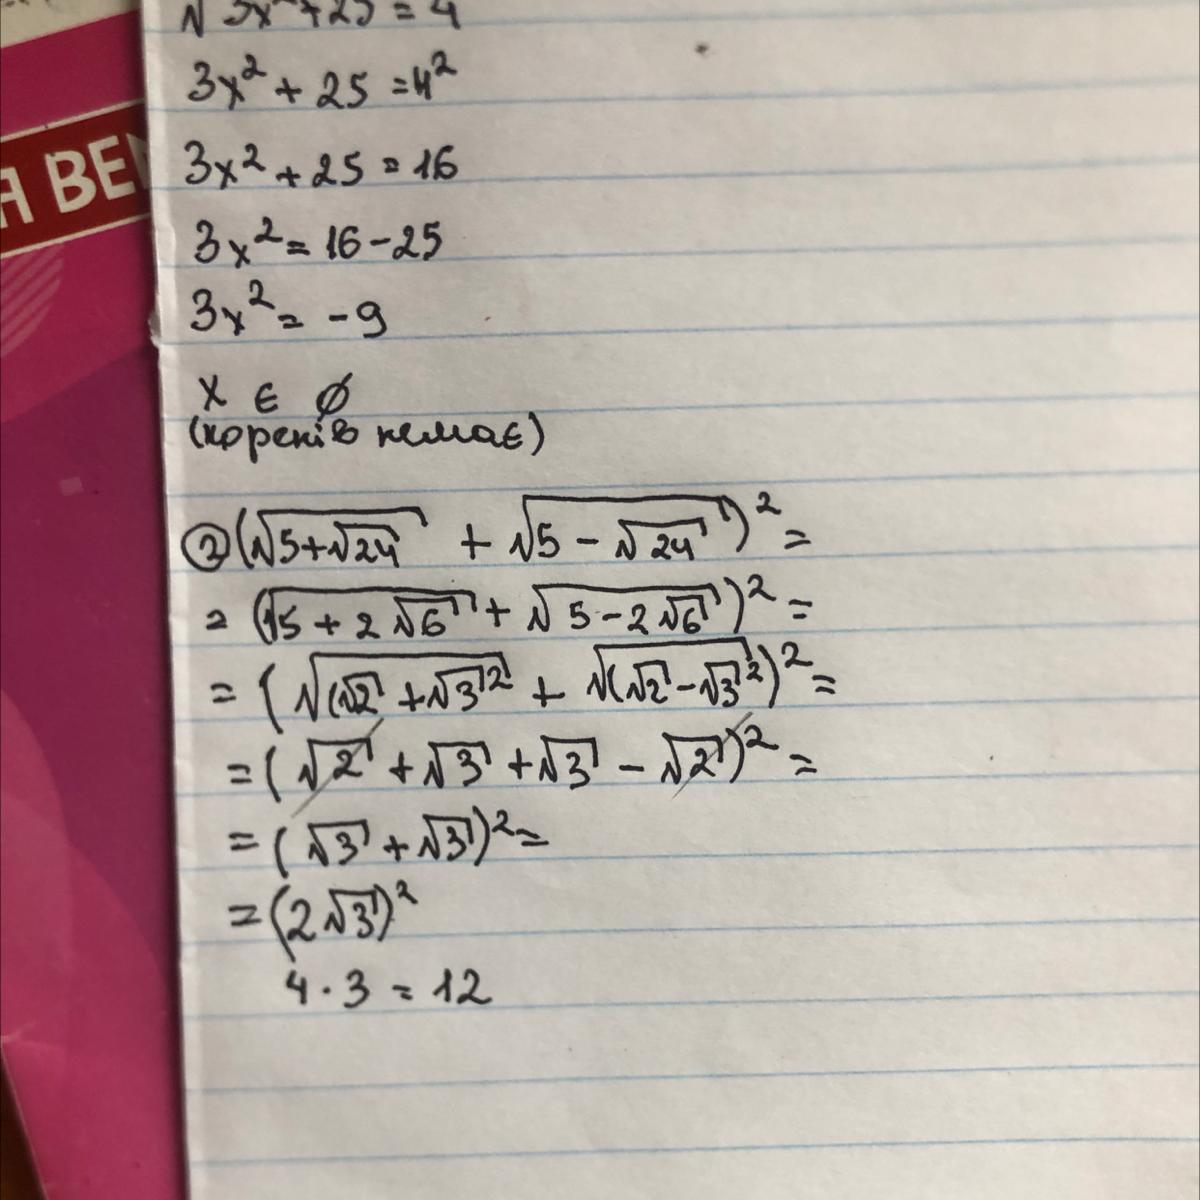 √3x²+25 = 4
3x² + 25 = 4²
3x² + 25 = 16
3x² = 16 - 25
3x² = - 9
x є ∅
(коренів немає)
② (√(5+√24) + √(5 - √24))² =
= (√(5 + 2√6) + √(5 - 2√6))² =
= (√(√2 + √3)² + √(√2 - √3)²)² =
= (√2 + √3 + √3 - √2)² =
= (√3 + √3)² =
= (2√3)²
4 · 3 = 12
Я ВЕ